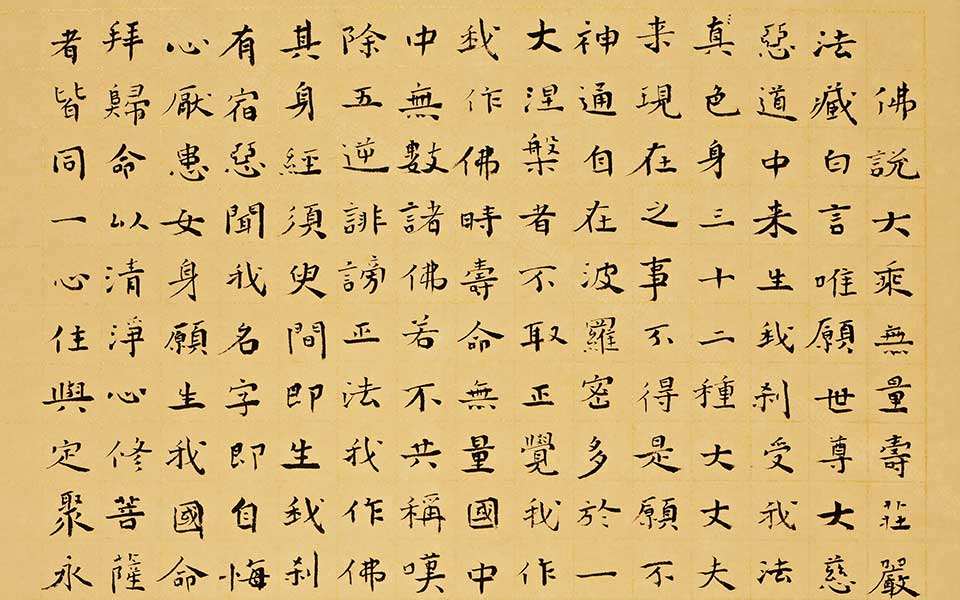 佛說大乘無量壽莊嚴
法藏白言唯願世尊大慈
惡道中来生我刹受我法
真色身三十二種大丈夫
来現在之事不得是願不
神通自在波羅密多於一
大涅槃者不取正覺我作
我作佛時壽命無量國中
中無數諸佛若不共稱嘆
除五逆誹謗正法我作佛
其身經須臾間即生我刹
有宿惡聞我名字即自悔
心厭患女身願生我國命
拜歸命以清淨心修菩薩
者皆同一心住與定聚永